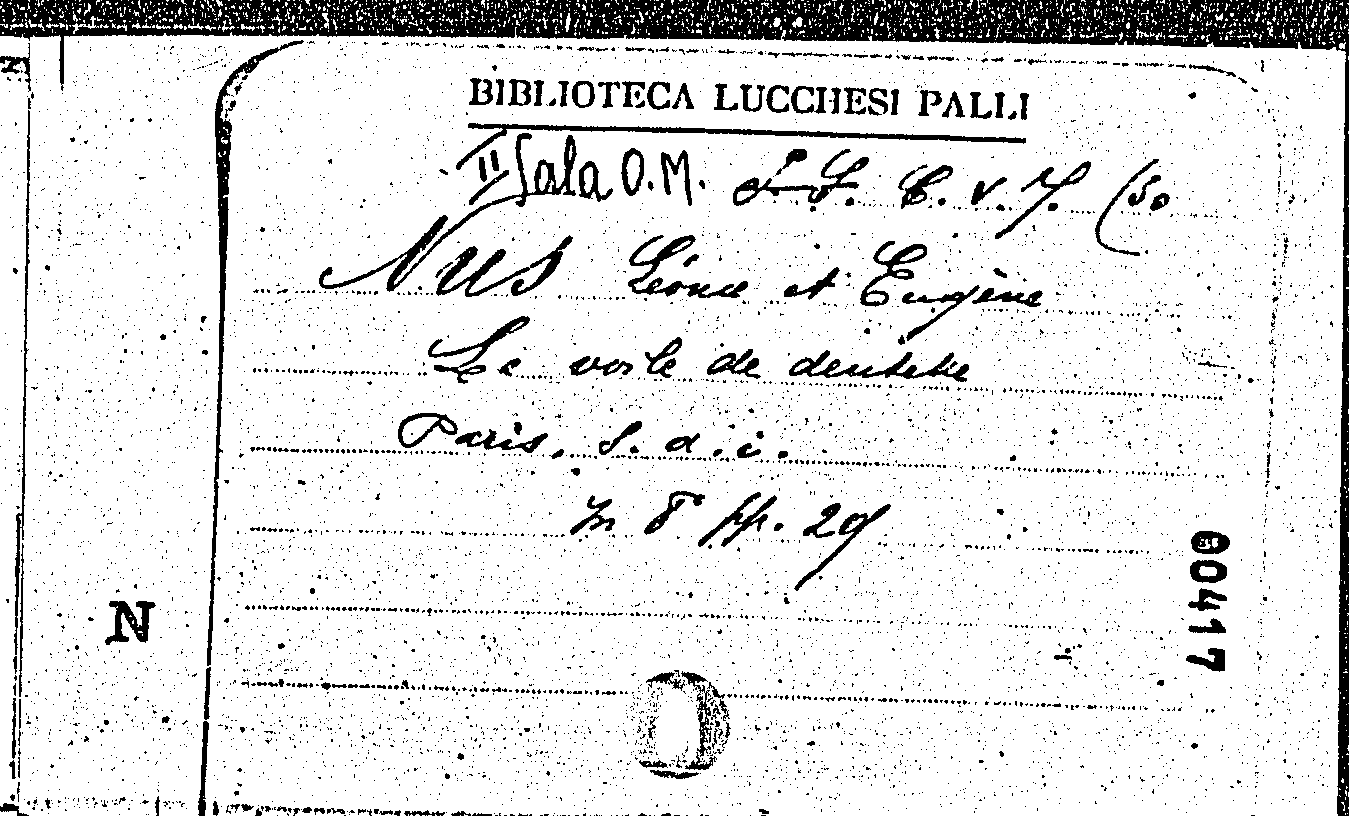 BIBLIOTECA LUCCHESI PALLI
II Sala O.M. C. v. 7. (50
NUS Léonce et Eugène
Le voile de dentelle
Paris, s. d. i.
in 8° pp. 29
N
00417